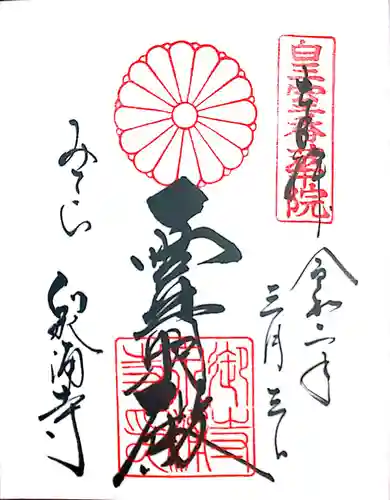 皇室香華院
令和二年
三月三日
霊明殿
みてら
泉涌寺